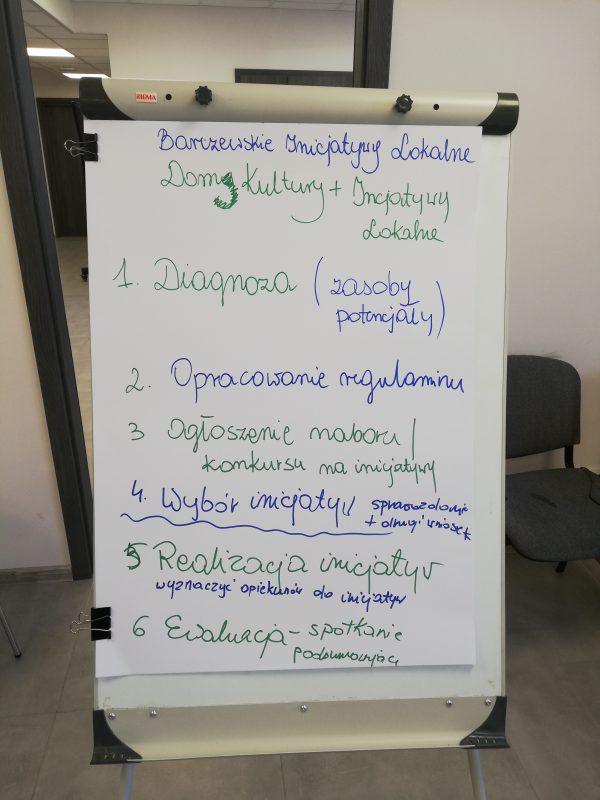 BIEMA
Barczewskie Inicjatywy Lokalne
Domy Kultury + Incjatywy
Lokalne
1. Diagnoza (zasoby
potencjały)
2. Opracowanie regulaminu
3 Ogłoszenie naboru /
konkursu na inicjatywy
4. Wybór inicjatyw sprawozdanie
+ drugi wniosek
5 Realizacja inicjatyw
wyznaczyć opiekunów do inicjatyw
6 Ewaluacja - spotkanie
podsumowujące